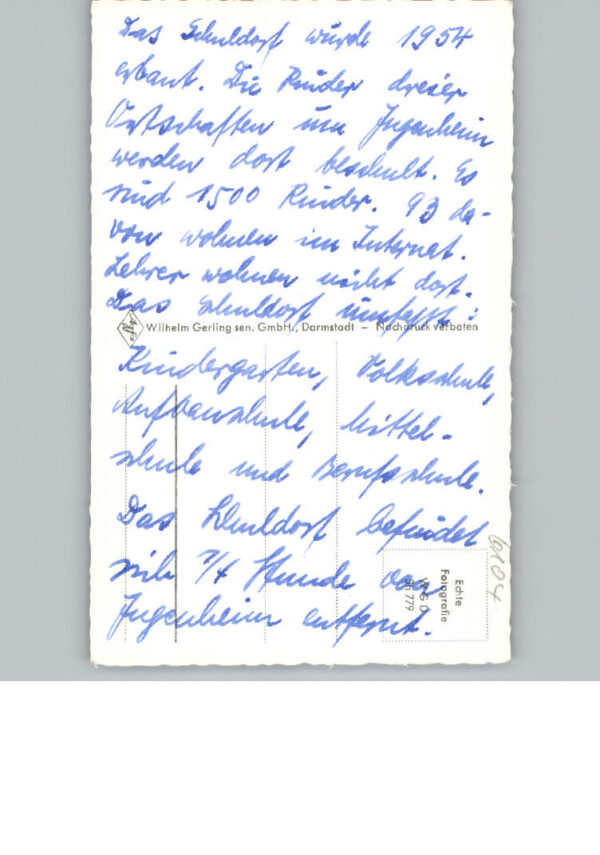 Das Schuldorf wurde 1954
erbaut. Die Kinder dreier
Ortschaften um Jugenheim
werden dort beschult. Es
sind 1500 Kinder. 93 da-
von wohnen im Internat.
Lehrer wohnen nicht dort.
Das Schuldorf umfaßt:
Agfa
Wilhelm Gerling sen. GmbH., Darmstadt – Nachdruck verboten
Kindergarten, Volksschule,
Aufbauschule, Mittel-
schule und Berufsschule.
Das Schuldorf befindet
sich 1/4 Stunde von
Jugenheim entfernt.
Echte
Fotografie
W G D
779
6104